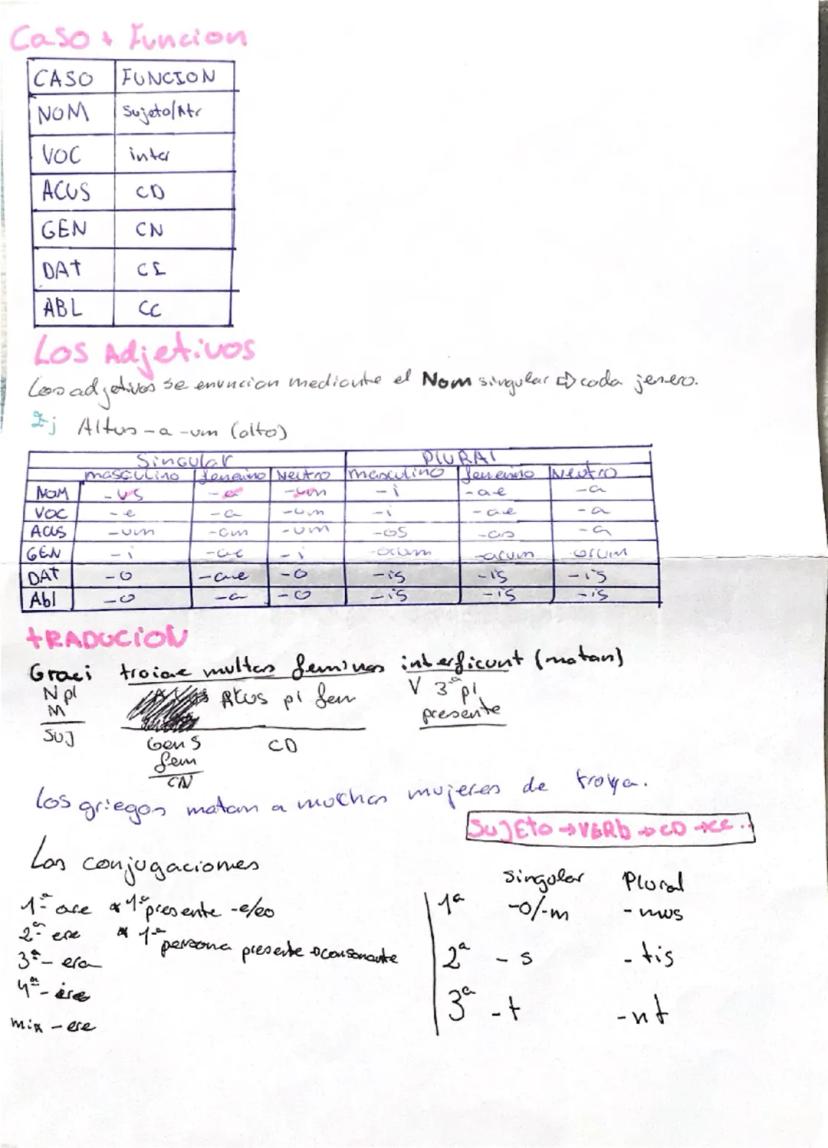 Caso + Funcion
CASO FUNCION
NOM Sujeto/Atr
VOC inter
ACUS CD
GEN CN
DAT CI
ABL CC
Los Adjetivos
Los adjetivos se enuncian mediante el Nom singular ⇨ cada jenero.
Ej Altus -a -um (alto)
Singular PLURAL
masculino femenino Neutro masculino femenino Neutro
NOM -us -a -um -i -ae -a
VOC -e -a -um -i -ae -a
ACUS -um -am -um -os -as -a
GEN -i -ae -i -orum -arum -orum
DAT -o -ae -o -is -is -is
Abl -o -a -o -is -is -is
tRADUCION
Graeci troiae multas feminas interficunt (matan)
N pl Acus pl fem V 3ª pl
M presente
SUJ Gen S CD
fem
CN
Los griegos matan a muchas mujeres de troya.
SUJETO → VERB → CD → CC..
Las conjugaciones
Singular Plural
1ª are * 1ª presente -e/eo
2ª ere * 1ª persona presente → consonante
3ª - ere
4ª - ire
mix - ere
1ª -o/-m -mus
2ª -s -tis
3ª -t -nt